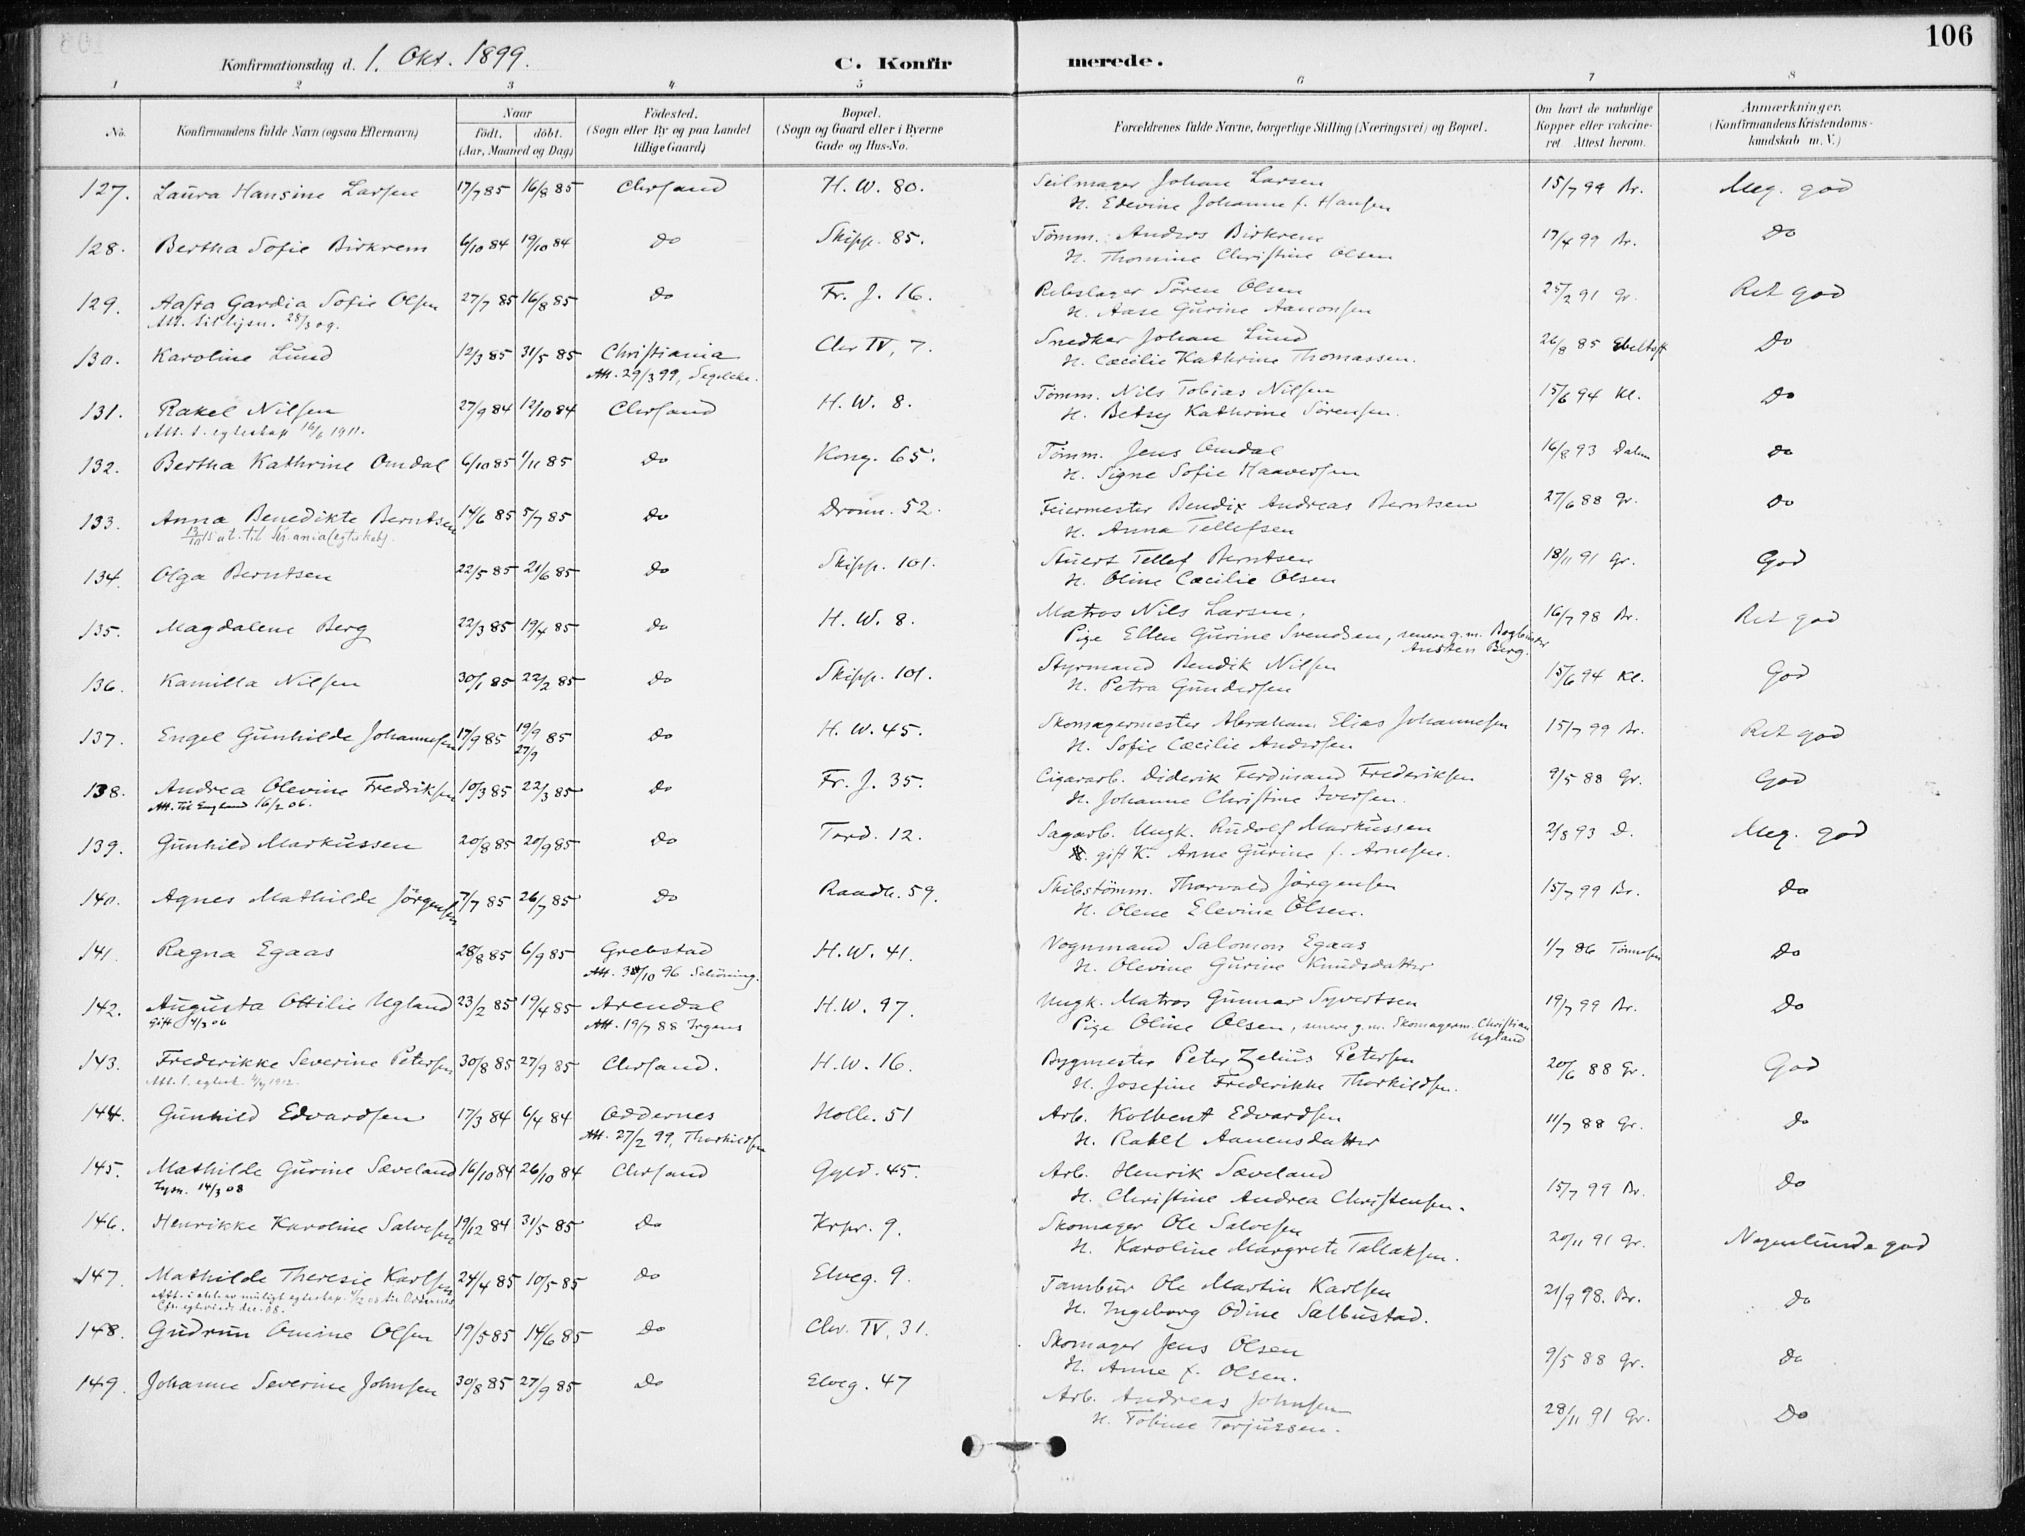 106
Konfirmationsdag d. 1. Okt. 1899.
C. Konfirmerede.
1 2 3 4 5 6 7 8
No. Konfirmandens fulde Navn (ogsaa Efternavn) Naar født. døbt. (Aar, Maaned og Dag) Fødested. (Sogn eller By og paa Landet tillige Gaard) Bopæl. (Sogn og Gaard eller i Byerne Gade og Hus-No. Forældrenes fulde Navne, borgerlige Stilling (Næringsvei) og Bopæl. Om havt de naturlige Kopper eller vakcineret. Attest herom. Anmærkninger. (Konfirmandens Kristendomskundskab m. V.)
127. Laura Hansine Larsen 17/7 85 16/8 85 Chrsand H. W. 80. Seilmager Johan Larsen 15/7 99 Br. Meg. god
H. Edevine Johanne f. Hansen
128. Bertha Sofie Birkrem 6/10 84 19/10 84 Do Skipp. 85. Tömm. Anders Birkrem 17/4 99 Br. Do
H. Thomine Christine Olsen
129. Aasta Gardia Sofie Olsen 27/7 85 16/8 85 Do Fr. J. 16. Rebslager Sören Olsen 25/2 91 Gr. Ret god
Att. til lysn. 28/3 09. H. Aase Gurine Aanonsen
130. Karoline Lund 12/3 85 31/5 85 Christiania Chr IV, 7. Snedker Johan Lund 26/8 85 Ebeltoft Do
Att. 29/3 99, Segelcke. H. Cæcilie Kathrine Thomassen.
131. Rakel Nilsen 27/9 84 12/10 84 Chrsand H. W. 8. Tömm. Nils Tobias Nilsen 15/6 94 Kl. Do
Att. t. egteskap 16/6 1911. H. Betsy Kathrine Sörensen.
132. Bertha Kathrine Omdal 6/10 85 1/11 85 Do Kong. 65. Tömm. Jens Omdal 16/8 93 Dalen Do
H. Signe Sofie Haaversen
133. Anna Benedikte Berntsen 14/6 85 5/7 85 Do Dronn. 52. Feiermester Bendix Andreas Berntsen 27/6 88 Gr. Do
H. Anna Tellefsen
134. Olga Berntsen 22/5 85 21/6 85 Do Skipp. 101. Stuert Tellef Berntsen 18/11 91 Gr. God
H. Oline Cæcilie Olsen
135. Magdalene Berg 22/3 85 19/4 85 Do H. W. 8. Matros Nils Larsen, 16/7 98 Br. Ret god
Pige Ellen Gurine Svendsen, senere g. m. Bogbinder
Austen Berg.
136. Kamilla Nilsen 30/1 85 22/2 85 Do Skipp. 101. Styrmand Bendik Nilsen 15/6 94 Kl. God
H. Petra Gundersen
137. Engel Gunhilde Johannesen 17/9 85 19/9 85 Do H. W. 45. Skomagermester Abraham Elias Johannesen 15/7 99 Br. Ret god
27/9 H. Sofie Cæcilie Andersen
138. Andrea Olevine Fredriksen 10/3 85 22/3 85 Do Fr. J. 35. Cigararb. Diderik Ferdinand Frederiksen 9/5 88 Gr. God
Att. til England 16/2 06. H. Johanne Christine Iversen.
139. Gunhild Markussen 20/8 85 20/9 85 Do Tord. 12. Sagarb. Ungk. Rudolf Markussen 2/8 93 D. Meg. god
gift K. Anne Gurine f. Arnesen.
140. Agnes Mathilde Jörgensen 7/7 85 26/7 85 Do Raadh. 59. Skibstömm. Thorvald Jörgensen 15/7 99 Br. Do
H. Olene Elevine Olsen.
141. Ragna Egaas 28/8 85 6/9 85 Grebstad H. W. 41. Vognmand Salomon Egaas 1/7 86 Tönnesen Do
Att. 30/10 96 Schöning. H. Olevine Gurine Knudsdatter
142. Augusta Ottilie Ugland 23/2 85 19/4 85 Arendal H. W. 97. Ungk. Matros Gunnar Syvertsen 19/7 99 Br. Do
Gift 4/3 06 Att. 19/7 88 Irgens Pige Oline Olsen, senere g. m. Skomagerm. Christian
Ugland
143. Frederikke Severine Petersen 30/8 85 27/9 85 Chrsand. H. W. 16. Bygmester Peter Zelius Petersen 20/6 88 Gr. God
H. Josefine Frederikke Thorkildsen.
144. Gunhild Edvardsen 17/3 84 6/4 84 Oddernes Holb. 51 Arb. Kolbent Edvardsen 11/7 88 Gr. Do
Att. 27/2 99, Thorkildsen H. Rakel Aanensdatter
145. Mathilde Gurine Sæveland 16/10 84 26/10 84 Chrsand Gyld. 45. Arb. Henrik Sæveland 15/7 99 Br. Do
Lysn. 14/3 08 H. Christine Andrea Christensen.
146. Henrikke Karoline Salvesen 19/12 84 31/5 85 Do Krpr. 9. Skomager Ole Salvesen 20/11 91 Gr. Nogenlunde god
H. Karoline Margrete Tallaksen.
147. Mathilde Theresie Karlsen 24/4 85 10/5 85 Do Elveg. 9. Tambur Ole Martin Karlsen 21/9 98. Br. Do
H. Ingeborg Odine Sælbustad.
148. Gudrun Omine Olsen 19/5 85 14/6 85 Do Chr. IV, 31. Skomager Jens Olsen 9/5 88 Gr. Do
H. Anne f. Olsen.
149. Johanne Severine Johnsen 30/8 85 27/9 85 Do Elveg. 47 Arb. Andreas Johnsen 28/11 91 Gr. Do
H. Tobine Torjussen.